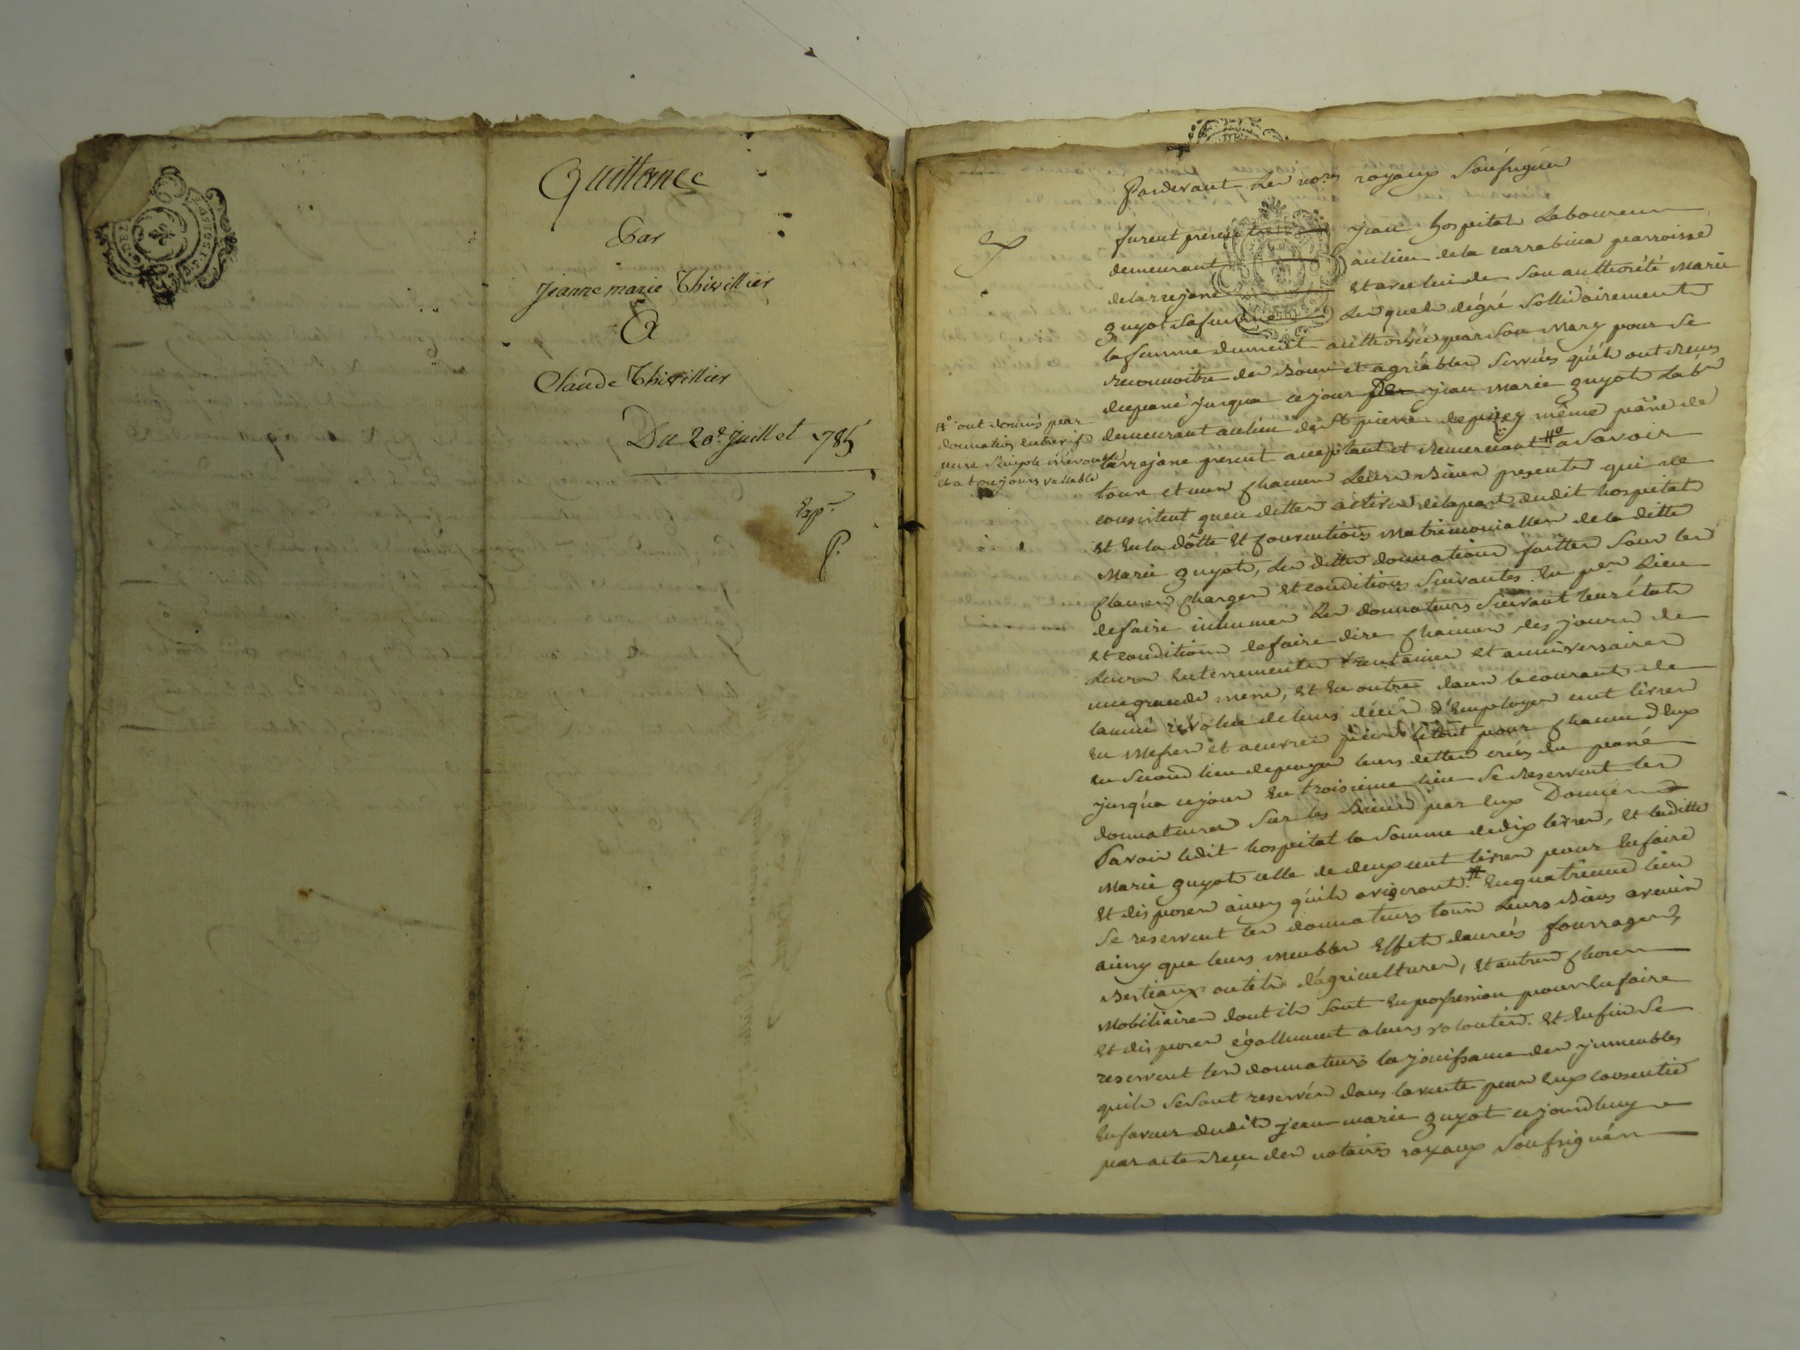 Quittance
Par
Jeanne marie Thivillier
A
Claude Thivillier
Du 20e. Juillet 1785
Exp.
P.
Pardevant les nores royaux soussignés
furent presents jean hospital laboureur
demeurant au lieu de la carrabina parroisse
de larrejane et avec lui de son authorité Marie
guyot sa femme lesquels de gré sollidairement
la femme dument authorisée par son mary pour se
reconnoitre des bons et agréables services qu'ils ont reçus
du passé jusqua ce jour jean marie guyot labr
demeurant au lieu de St pierre même pasne de
larrejane present acceptant et remerciant # a savoir
# ont donnés par
donnation entre vifs
pure simple irrevocable
et a toujours vallable
tous et uns chacuns leurs biens presents qui ne
consistent qu'en dittes de la part dudit hospital
et en la dotte et matrimonialles de la ditte
Marie guyot, les dittes donnations faittes sous les
clauses charges et conditions suivantes. En per lieu
de faire inhumer les donnateurs suivant leur état
et condition de faire dire chacuns des jours de
leurs enterrements trentaines et anniversaires
une grande messe, et en outre dans le courant de
lannée révolue de leurs décès d'employer cent livres
en messes et œuvres pies le tout pour chacun d'eux
en second lieu de payer leurs dettes créés du passé
jusqu'a ce jour En troisieme lieu se reservent les
donnateurs sur les biens par eux Donnés
savoir ledit hospital la somme de dix livres, et laditte
Marie guyot celle de deux cent livres pour en faire
et disposer ainsy qu'ils aviseront. # En quatrieme lieu
se reservent les donnateurs tous leurs biens avenir
ainsy que leurs meubles effets denrées fourrages
bestiaux outils d'agricultures, et autres choses
Mobiliaires dont ils sont en possession pour en faire
et disposer égallement a leurs volontés. Et enfin se
reservent les donnateurs la jouissance des jmmeubles
qu'ils se sont reservés dans la vente par eux consentie
en faveur dudit jean marie guyot cejourdhuy
par acte reçu des notaires royaux soussignés